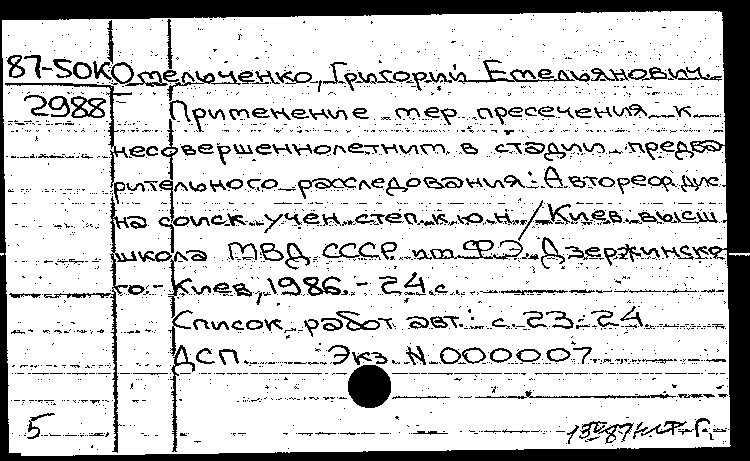 87-5ОК Омельченко, Григорий Емельянович.
2988 Применение мер пресечения к
несовершеннолетним в стадии предва
рительного расследования: Автореф дис
на соиск. учен. степ. к. ю. н. / Киев. высш
школа МВД СССР им. Ф.Э. Дзержинско
го. - Киев, 1986. - 24 с.
Список работ авт.: с. 23-24
ДСП. Экз. N 000007
5